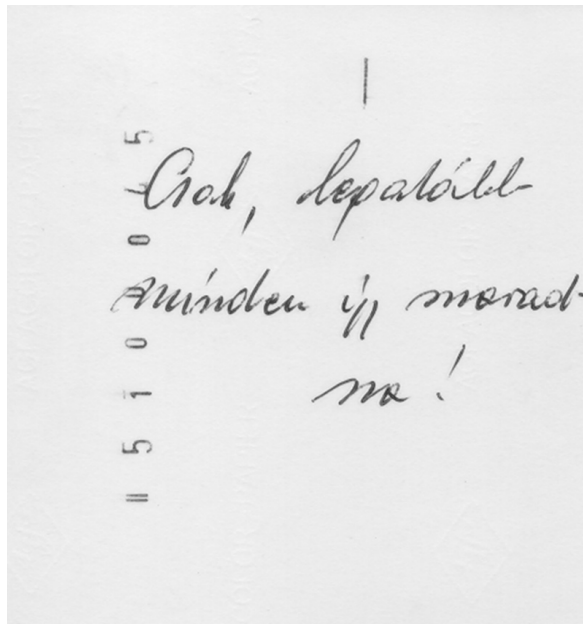 Csak, legalább
minden így marad-
na!